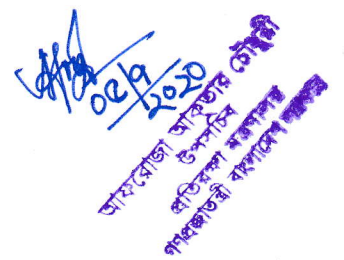 ০৫/৭
২০২০
আফরোজা আক্তার চৌধুরী
উপসচিব
প্রতিরক্ষা মন্ত্রণালয়
গণপ্রজাতন্ত্রী বাংলাদেশ সরকার